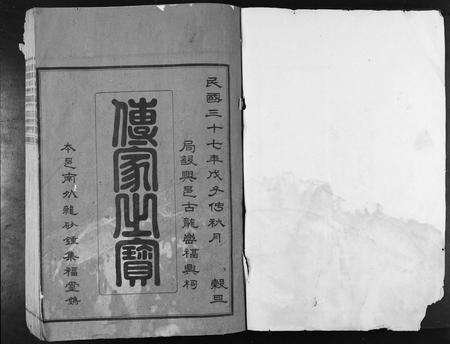 民國三十七年戊子信秋月 穀旦
局設興邑古龍崗福興祠
傳家之寶
本邑南外龍砂鍾集福堂鐫